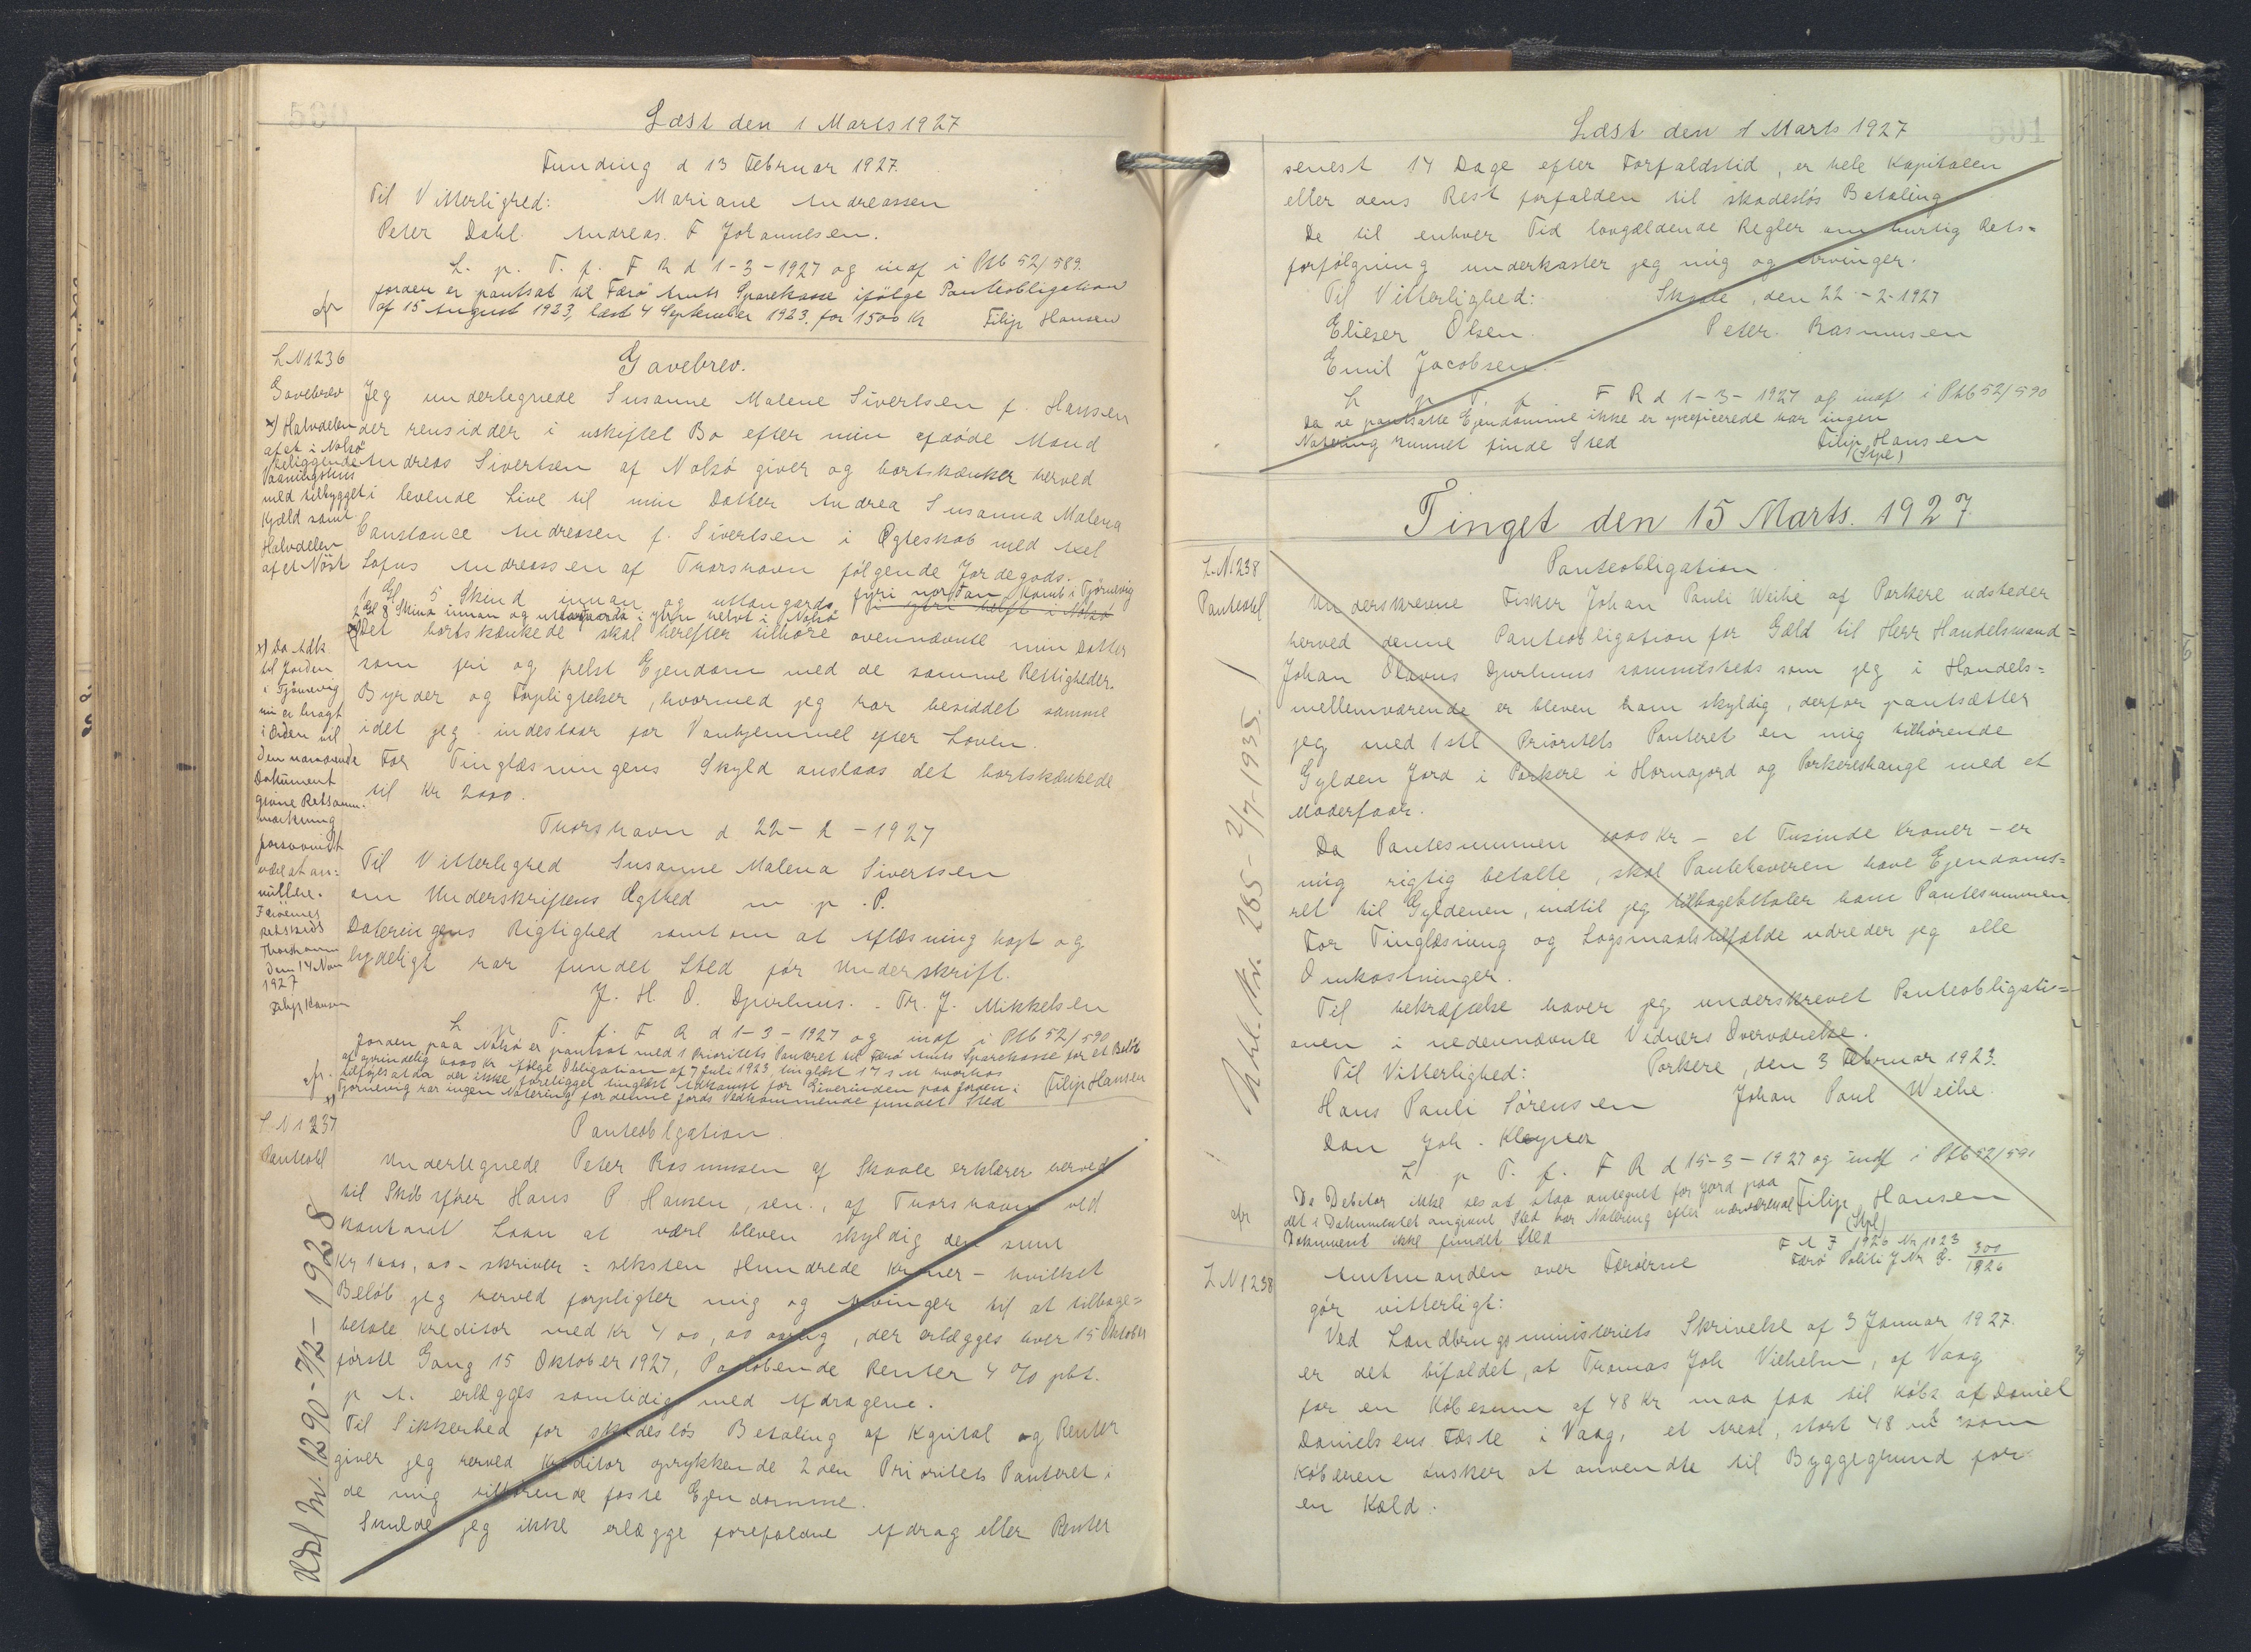 500
Læst den 1 Marts 1927
Funding d 13 Februar 1927.
Til Vitterlighed: Mariane Andreassen
Peter Dahl. Andreas. F Johannesen.
L. p. T. f. F R d 1-3-1927 og indf i Ptb 52/589.
Jorden er pantsat til Færø Amts Sparekasse ifølge Panteobligation
af 15 August 1923, læst 4 September 1923 for 1500 Kr Filip Hansen
afr
L N 1236
Gavebrev
x) Halvdelen
af et i Nolsø
beliggende
Vaaningshus
med tilbygget
Kjæld samt
Halvdelen
af et Nöst
Gavebrev.
Jeg undertegnede Susanne Malene Sivertsen f. Hansen
der hensidder i uskiftet Bo efter min afdøde Mand
Andreas Sivertsen af Nolsø giver og bortskænker herved
i levende Live til min Datter Andrea Susanna Malena
Constance Andreasen f. Sivertsen i Ægteskab med Axel
Sofus Andreassen af Thorshavn følgende Jordegods:
1 Gl 5 Skind innan og uttangards fyri nordan Kamb i Tjørnevig
2 Gl 8 Skind innan og uttangarda i ytru helvt i Nolsø i ytri helft i Nolsø
x) Det bortskænkede skal herefter tilhøre ovennævnte min Datter
som fri og frelst Ejendom med de samme Rettigheder.
Byrder og Forpligtelser, hvormed jeg har besiddet samme
idet jeg indestaar for Vanhjemmel efter Loven.
For Tinglæsningens Skyld anslaas det bortskænkede
til Kr 2000.
x) Da Adk
til Jorden
i Tjörnevig
nu er bragt
i Orden vil
den nærværende
Dokument
givne Retsanm.
mærkning
forsaavidt
være at an=
nullere.
Færøernes
Retskreds
Thorshavn
Den 14 Nov
1927
Filip Hansen
Thorshavn d 22-2-1927
Til Vitterlighed Susanne Malena Sivertsen
om Underskriftens Ægthed m p. P.
Dateringens Rigtighed samt om at Oplæsning højt og
tydeligt har fundet Sted før Underskrift.
J. H. O. Djurhuus. Fr. J. Mikkelsen
L p T. f. F R d 1-3-1927 og indf i Ptb 52/590
Jorden paa Nolsø er pantsat med 1 Prioritets Panteret til Færø Amts Sparekasse for et Beløb
af oprindelig 6000 Kr ifølge Obligation af 7 Juli 1923, tinglæst 17 s M hvorhos
tilføjes at da der ikke foreligger tinglæst Adkomst for Giverinden paa Jorden i
x) Tjørnevig har ingen Notering for denne Jords Vedkommende fundet Sted Filip Hansen
afr.
L N 1237
Panteobl
Panteoblgation.
Undertegnede Peter Rasmussen af Skaale erklærer herved
til Skibsfører Hans P. Hansen, sen., af Thorshavn ved
kontant Laan at være bleven skyldig den sum
Kr 1600,00 - skriver = seksten Hundrede Kroner - hvilket
Beløb jeg herved forpligter mig og Arvinger til at tilbage=
betale Kreditor med Kr 400,00 aarlig, der erlægges hver 15 Oktober
første Gang 15 Oktober 1927, Paaløbende Renter 4 % pct.
p A. erlægges samtidig med Afdragene.
Til Sikkerhed for skadesløs Betaling af Kapital og Renter
giver jeg herved Kreditor oprykkende 2den Prioritets Panteret i
de mig tilhørende faste Ejendomme.
Skulde jeg ikke erlægge forefaldne Afdrag eller Renter
Udsl Nr. 1290-7/2-1928
501
Læst den 1 Marts 1927
senest 14 Dage efter Forfaldstid, er hele Kapitalen
eller dens Rest forfalden til skadesløs Betaling
De til enhver Tid lovgældende Regler om hurtig Rets=
forfølgning underkaster jeg mig og Arvinger.
Til Vitterlighed: Skaale, den 22-2-1927
Elieser Olsen. Peter Rasmussen
Emil Jacobsen.
L p T. f. F R d 1-3-1927 og indf. i Ptb 52/590
Da de pantsatte Ejendomme ikke er specificerede har ingen
Notering kunnet finde Sted Filip Hansen
(Stpl)
Tinget den 15 Marts. 1927
L. N 1238
Panteobl
Panteobligation.
Underskrevne Fisker Johan Pauli Weihe af Porkere udsteder
herved denne Panteobligation for Gæld til Herr Handelsmand=
Johan Olavus Djurhuus sammesteds som jeg i Handels=
mellemværende er bleven ham skyldig, derfor pantsætter
jeg med 1ste Prioritets Panteret en mig tilhørende
Gylden Jord i Porkere i Hornajord og Porkereshauge med et
Moderfaar.
Da Pantesummen 1000 Kr - et Tusinde Kroner - er
mig rigtig betalte, skal Panthaveren have Ejendoms=
ret til Gyldenen, indtil jeg tilbagebetaler ham Pantesummen.
For Tinglæsning og Søgsmaalstilfælde udreder jeg alle
Omkostninger.
Til bekræftelse haver jeg underskrevet Panteobligati=
onen i nedennævnte Vidners Overværelse.
Til Vitterlighed: Porkere, den 3 Februar 1923.
Hans Pauli Sørensen Johan Paul Weihe.
Dan Joh. Kleyner
L p T. f. F R d 15-3-1927 og indf i Ptb 52/591
Da Debitor ikke ses at staa antegnet for Jord paa
det i Dokumentet angivne Sted har Notering efter nærværende Filip Hansen
Dokument ikke fundet Sted (Stpl)
afr
Nr. 265 - 2/7-1935.
L N 1238
F A J 1926 Nr 1023
Færø Politi J Nr B. 300/1926
Amtmanden over Færøerne
gør vitterligt:
Ved Landbrugsministeriets Skrivelse af 3 Januar 1927.
er det bifaldet, at Thomas Joh Vilhelm, af Vaag
for en Købesum af 48 Kr maa faa til Købs af Daniel
Danielsens Fæste i Vaag, et Areal, stort 48 m² som
Køberen ønsker at anvendte til Byggegrund for
en Kæld.